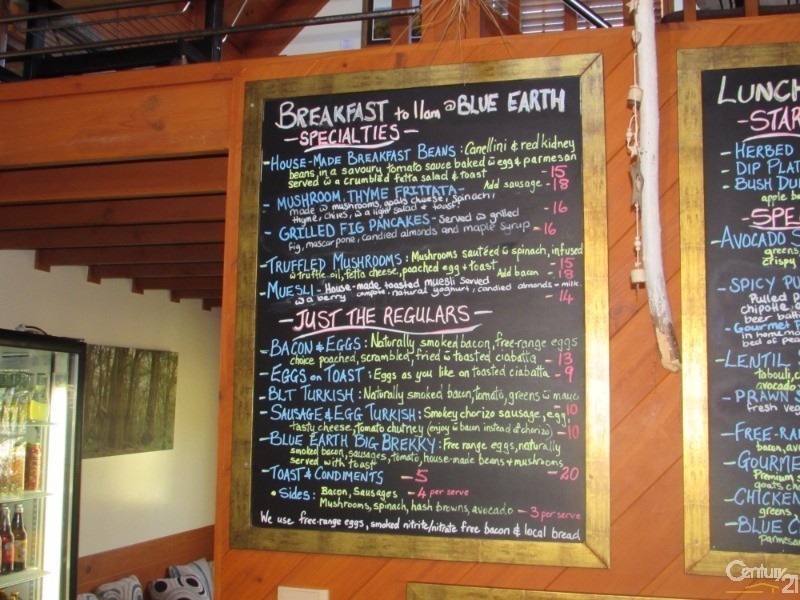 BREAKFAST to 11am @ BLUE EARTH
- SPECIALTIES -
- HOUSE-MADE BREAKFAST BEANS: Canellini & red kidney
beans, in a savoury tomato sauce baked w egg & parmesan
served w a crumbled fetta salad & toast - 15
Add sausage - 18
- MUSHROOM, THYME FRITTATA -
made w mushrooms, goats cheese, spinach,
thyme, chives, w a light salad & toast - 16
- GRILLED FIG PANCAKES - Served w grilled
fig, mascarpone, candied almonds and maple syrup - 16
- TRUFFLED MUSHROOMS: Mushrooms sautéed w spinach, infused
w truffle oil, fetta cheese, poached egg & toast - 15
Add bacon - 18
- MUESLI - House-made toasted muesli served
w a berry compote, natural yoghurt, candied almonds & milk
- 14
- JUST THE REGULARS -
- BACON & EGGS: Naturally smoked bacon, free-range eggs
choice poached, scrambled, fried w toasted ciabatta - 13
- EGGS on TOAST: Eggs as you like on toasted ciabatta - 9
- BLT TURKISH: Naturally smoked bacon, tomato, greens w mayo
- 10
- SAUSAGE & EGG TURKISH: Smokey chorizo sausage, egg,
tasty cheese, Tomato chutney (enjoy w bacon instead of chorizo) - 10
- BLUE EARTH BIG BREKKY: Free range eggs, naturally
smoked bacon, sausages, tomato, house-made beans & mushrooms
served with toast - 20
- TOAST & CONDIMENTS - 5
• SIDES: Bacon, Sausages - 4 per serve
Mushrooms, spinach, hash browns, avocado - 3 per serve
We use free-range eggs, smoked nitrite/nitrate free bacon & local bread
LUNCH
- STAR
- HERBED
- DIP PLAT
- BUSH DU
apple b
- SPE
- AVOCADO S
greens,
crispy
- SPICY PU
Pulled p
chipotle
beer bat
- Gourmet
in homem
bed of pea
- LENTIL
tabouli, c
avocado
- PRAWN S
fresh veg
- FREE-RA
bacon, av
- GOURME
Premium s
goats che
- CHICKEN
greens,
- BLUE C
parmesan
Century 21